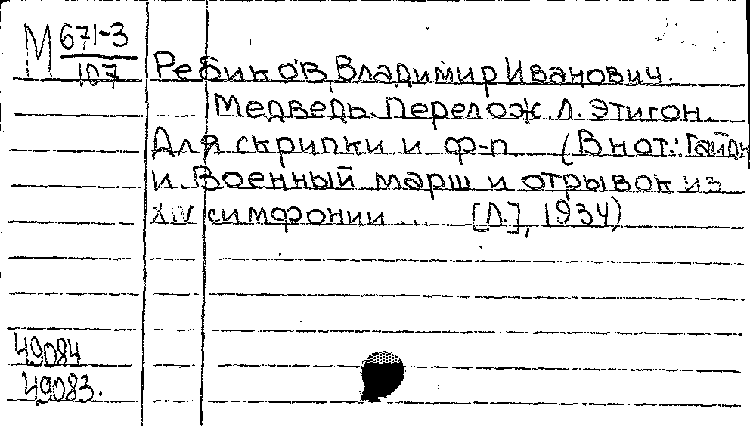 М 671-3
107
Ребиков, Владимир Иванович.
Медведь. Перелож. Л. Этигон.
Для скрипки и ф-п (В нот.: Гайдн
И. Военный марш и отрывок из
XIV симфонии... [Л.], 1934)
49084
49083.